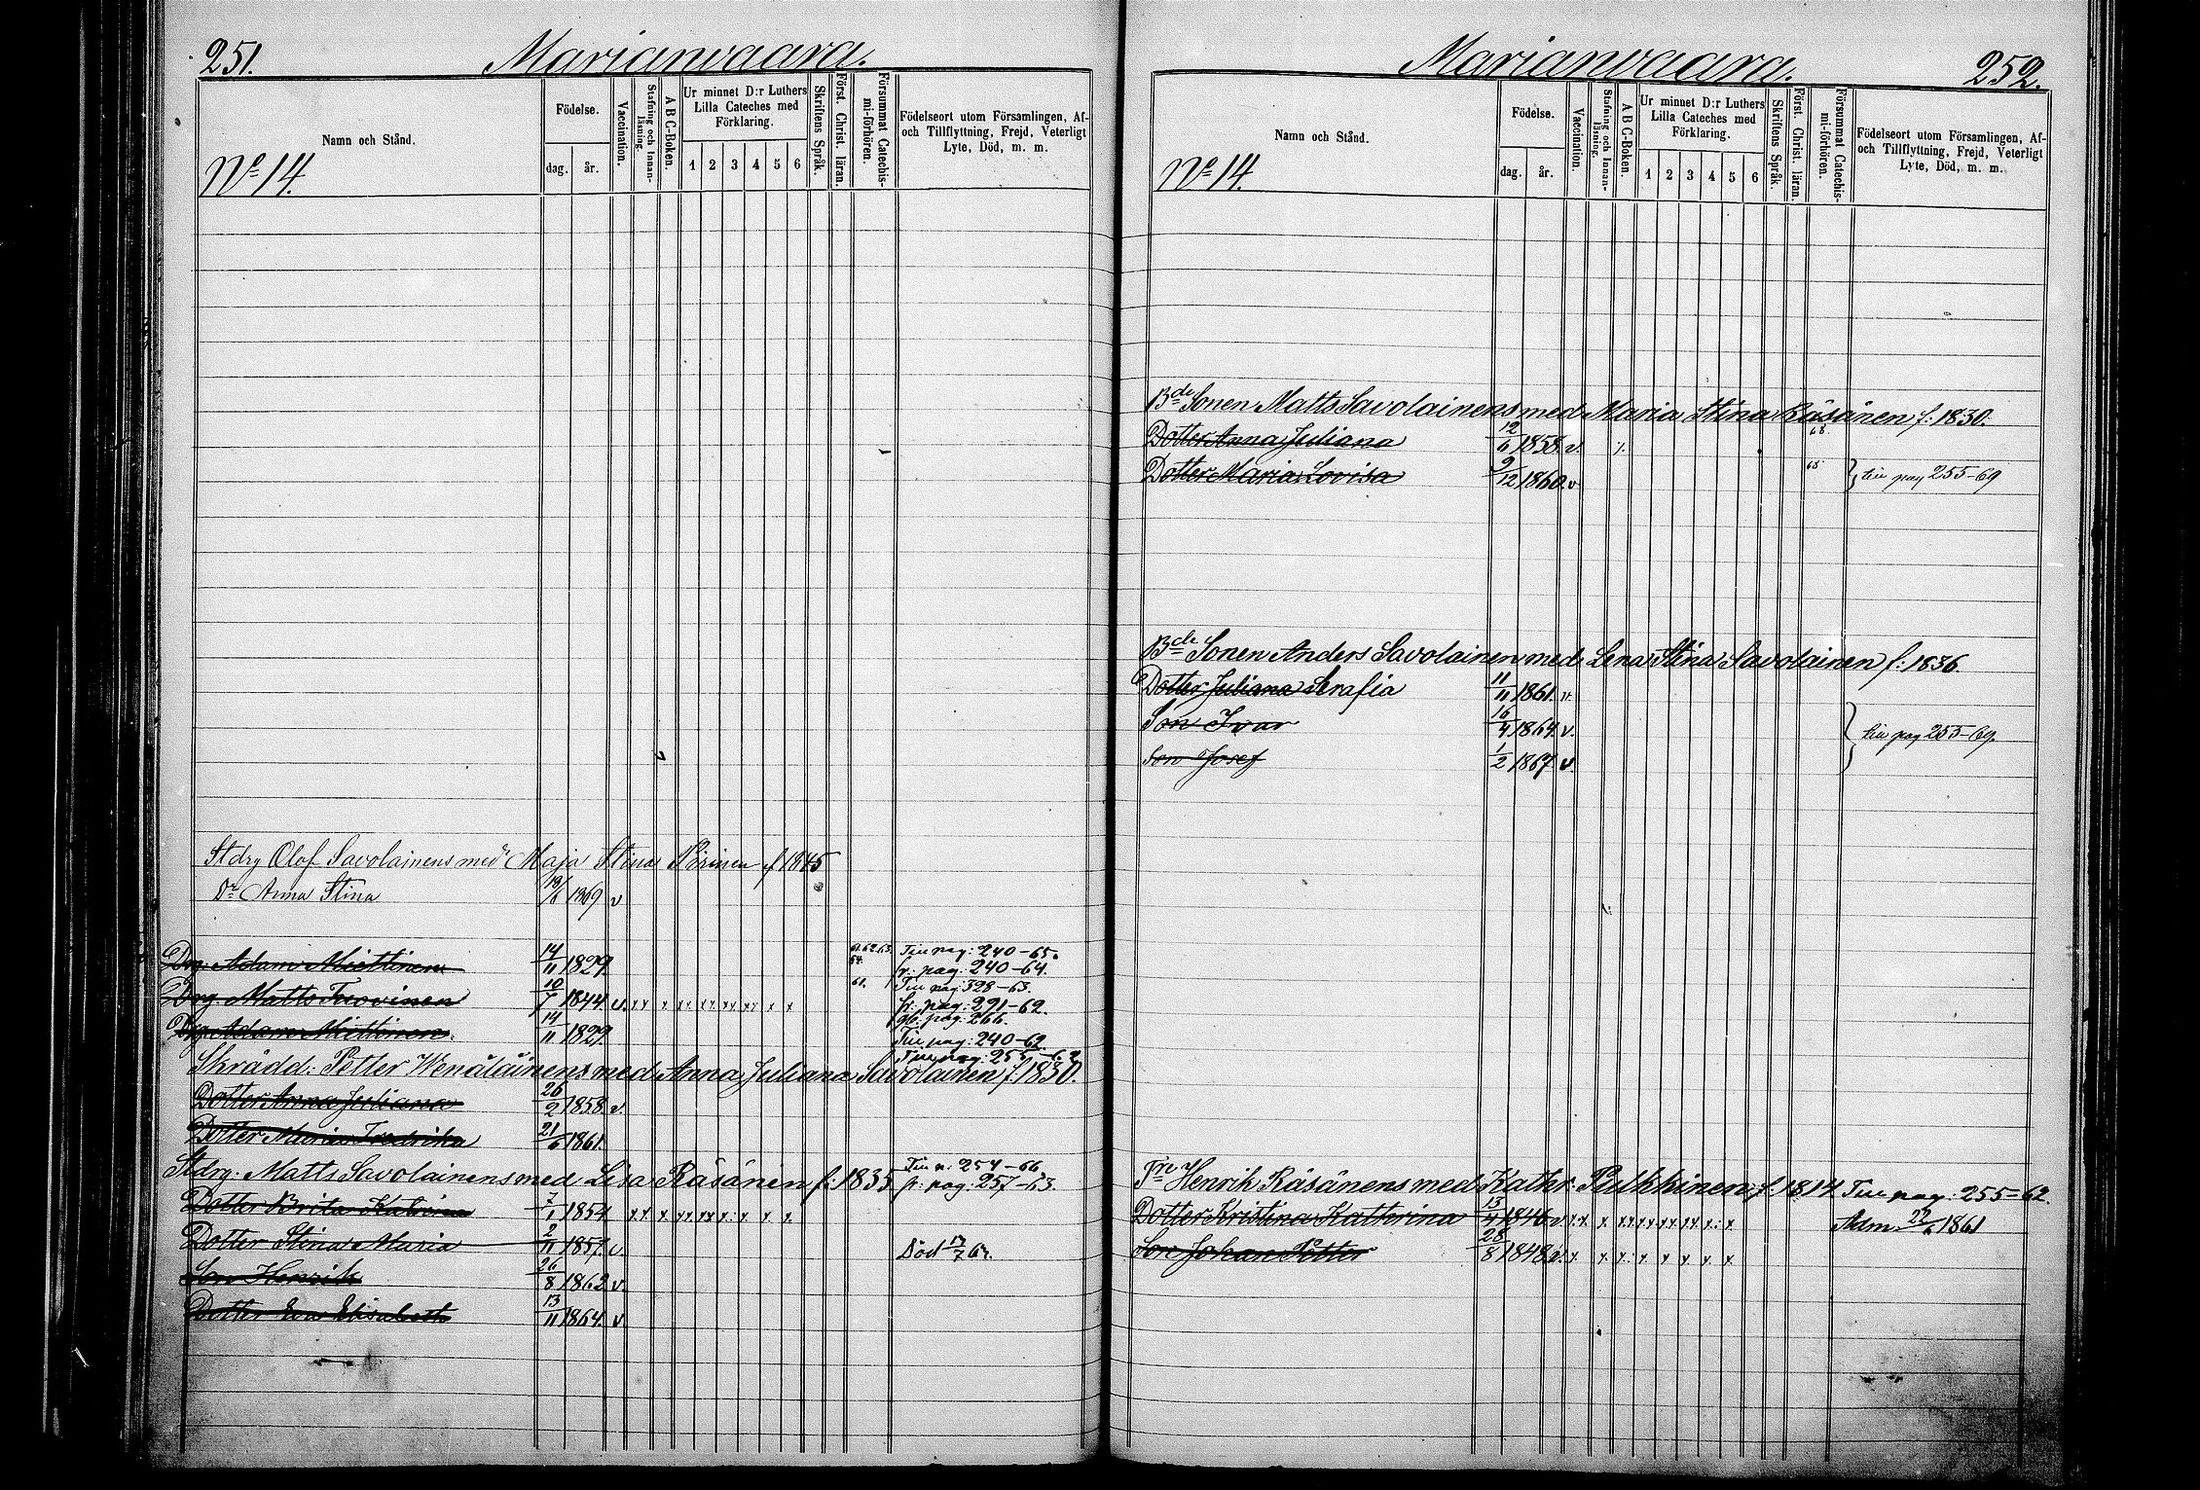 251.
Marianvaara.
Namn och Stånd.
Födelse.
dag.
år.
Vaccination.
Stafning och Innan-läsning.
A B C-Boken.
Ur minnet D:r Luthers
Lilla Cateches med
Förklaring.
1 2 3 4 5 6
Skriftens Språk.
Först. Christ. läran.
Försummat Catechis-mi-förhören.
Födelseort utom Församlingen, Af-
och Tillflyttning, Frejd, Veterligt
Lyte, Död, m. m.
No 14.
Stdrg Olof Savolainens med Maja Stina f 1845
Dr Anna Stina 1869 v
Drg. Adam Miettinen 14/11 1829. 61.62.63. 64. Till pag: 240-65.
fr: pag: 240-64.
Drg. Matts Tuovinen 10/7 1844 v. xx x xx xx xx xx x x 61. Till pag: 328-63.
fr: pag: 291-62.
Drg. Adam Miettinen. 14/11 1829. pag: 266.
Till pag: 240-62.
Skrädd: Petter Wenäläinens med Anna Juliana Savolainen f: 1830.
Dotter Anna Juliana 26/2 1858 v.
Dotter Maria Fredrika 21/6 1861.
Stdrg: Matts Savolainens med Lisa Räsänen f: 1835 Till p: 254-66
fr: pag: 257-63.
Dotter Brita Katrina 7/1 1854 xx x xx xx x x x
Dotter Stina Maria 2/11 1857 v. Död 17/7 67.
Son Henrik 26/8 1862 v.
Dotter Eva Elisabeth 13/11 1864. v
Marianvaara.
252.
Namn och Stånd.
Födelse.
dag.
år.
Vaccination.
Stafning och Innan-läsning.
A B C-Boken.
Ur minnet D:r Luthers
Lilla Cateches med
Förklaring.
1 2 3 4 5 6
Skriftens Språk.
Först. Christ. läran.
Försummat Catechis-mi-förhören.
Födelseort utom Församlingen, Af-
och Tillflyttning, Frejd, Veterligt
Lyte, Död, m. m.
No 14.
Bde Sonen Matts Savolainens med Maria Stina Räsänen f: 1830.
Dotter Anna Juliana 12/6 1858. v. 68.
Dotter Maria Lovisa 9/12 1860. v 68 till pag 255-69
Bde Sonen Anders Savolainen med Lena Stina Savolainen f: 1836.
Dotter Juliana Serafia 11/11 1861. v.
Son Ivar 16/4 1864. v. till pag 255-69.
Son Josef 1/2 1867 v.
Henrik Räsänens med Kathr. Pulkkinen f. 1814. Till pag: 255-62
Dotter Kristina Kathrina 15/4 1846. v xx x xx xx xx xx x: x Adm. 1861
Son Johan Petter 28/8 1848. v. x x x: x x x x